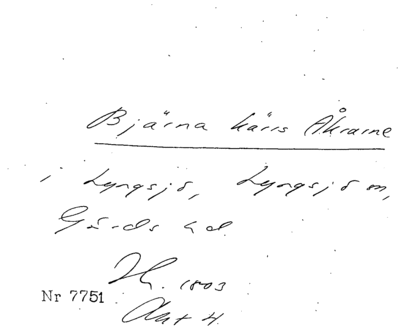 Bjärna kärrs Åkrarne
i Lyngsjö, Lyngsjö sn,
Gärds hd.
1803
Nr 7751
Akt 4.